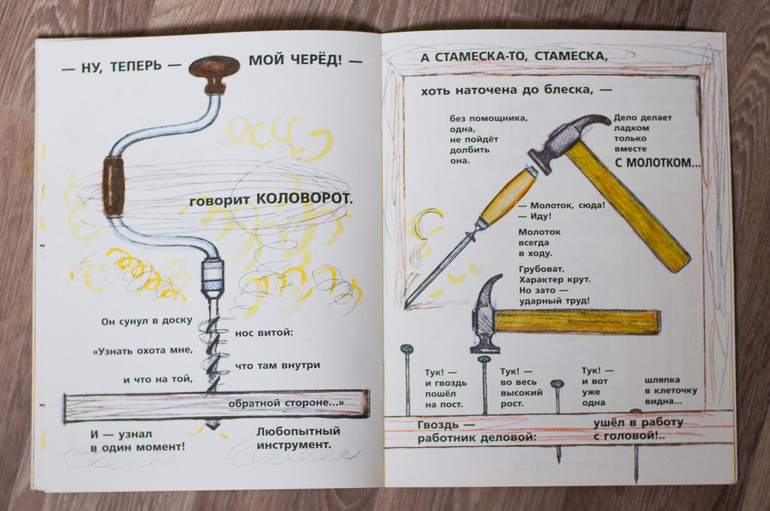 — НУ, ТЕПЕРЬ — МОЙ ЧЕРЁД! —
говорит КОЛОВОРОТ.
Он сунул в доску нос витой:
«Узнать охота мне, что там внутри
и что на той, обратной стороне...»
И — узнал
в один момент!
Любопытный
инструмент.
А СТАМЕСКА-ТО, СТАМЕСКА,
хоть наточена до блеска, —
без помощника,
одна,
не пойдёт
долбить
она.
Дело делает
ладком
только
вместе
С МОЛОТКОМ...
— Молоток, сюда!
— Иду!
Молоток
всегда
в ходу.
Грубоват.
Характер крут.
Но зато —
ударный труд!
Тук! —
и гвоздь
пошёл
на пост.
Тук! —
во весь
высокий
рост.
Тук! —
и вот
уже
одна
шляпка
в клеточку
видна...
Гвоздь —
работник деловой:
ушёл в работу
с головой!..